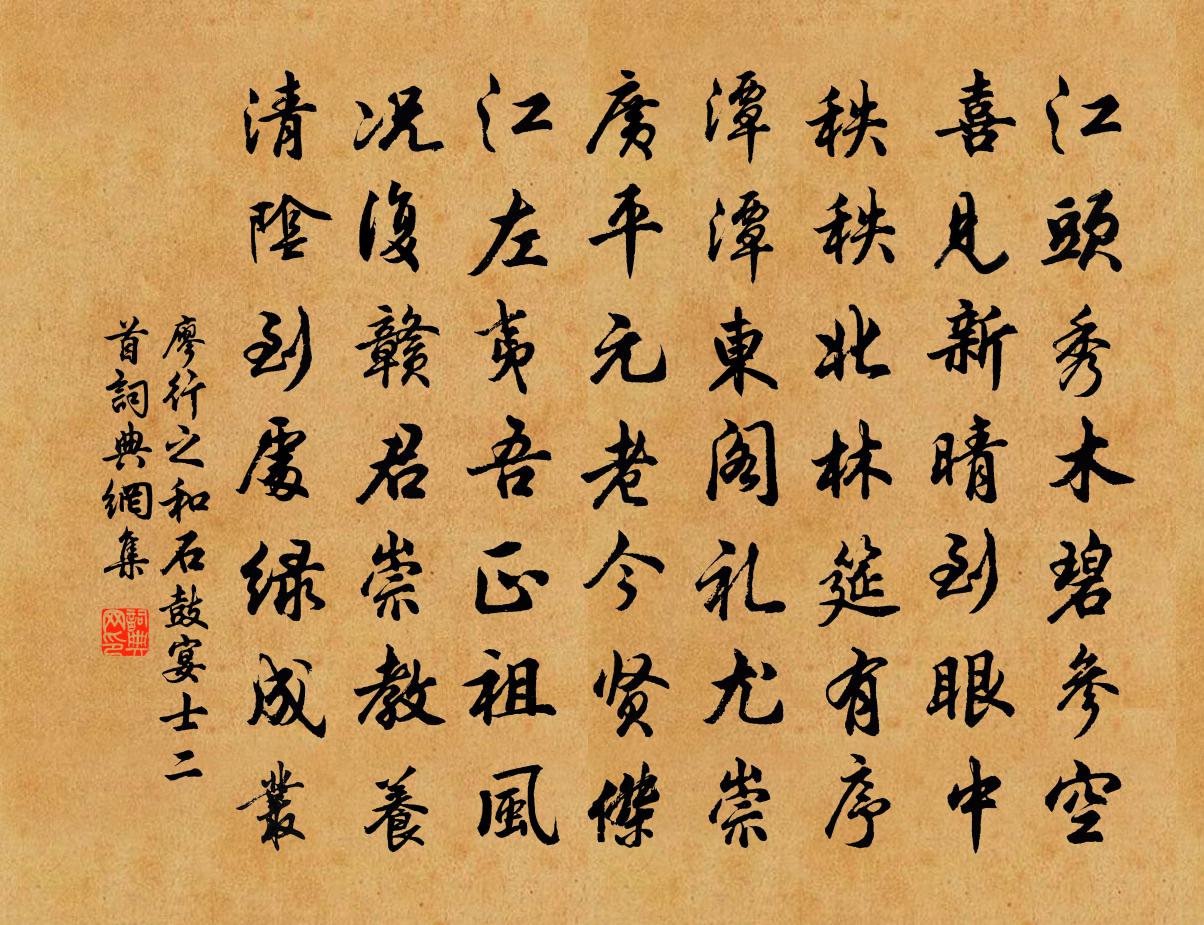 江頭秀木碧參空
喜見新晴到眼中
秩秩北林筵有序
潭潭東閣礼尤崇
廣平元老今贤傑
江左夷吾正祖風
况復贛君崇教養
清陰到處緑成叢
廖行之和石鼓宴士二
首詞典網集
詞典网印